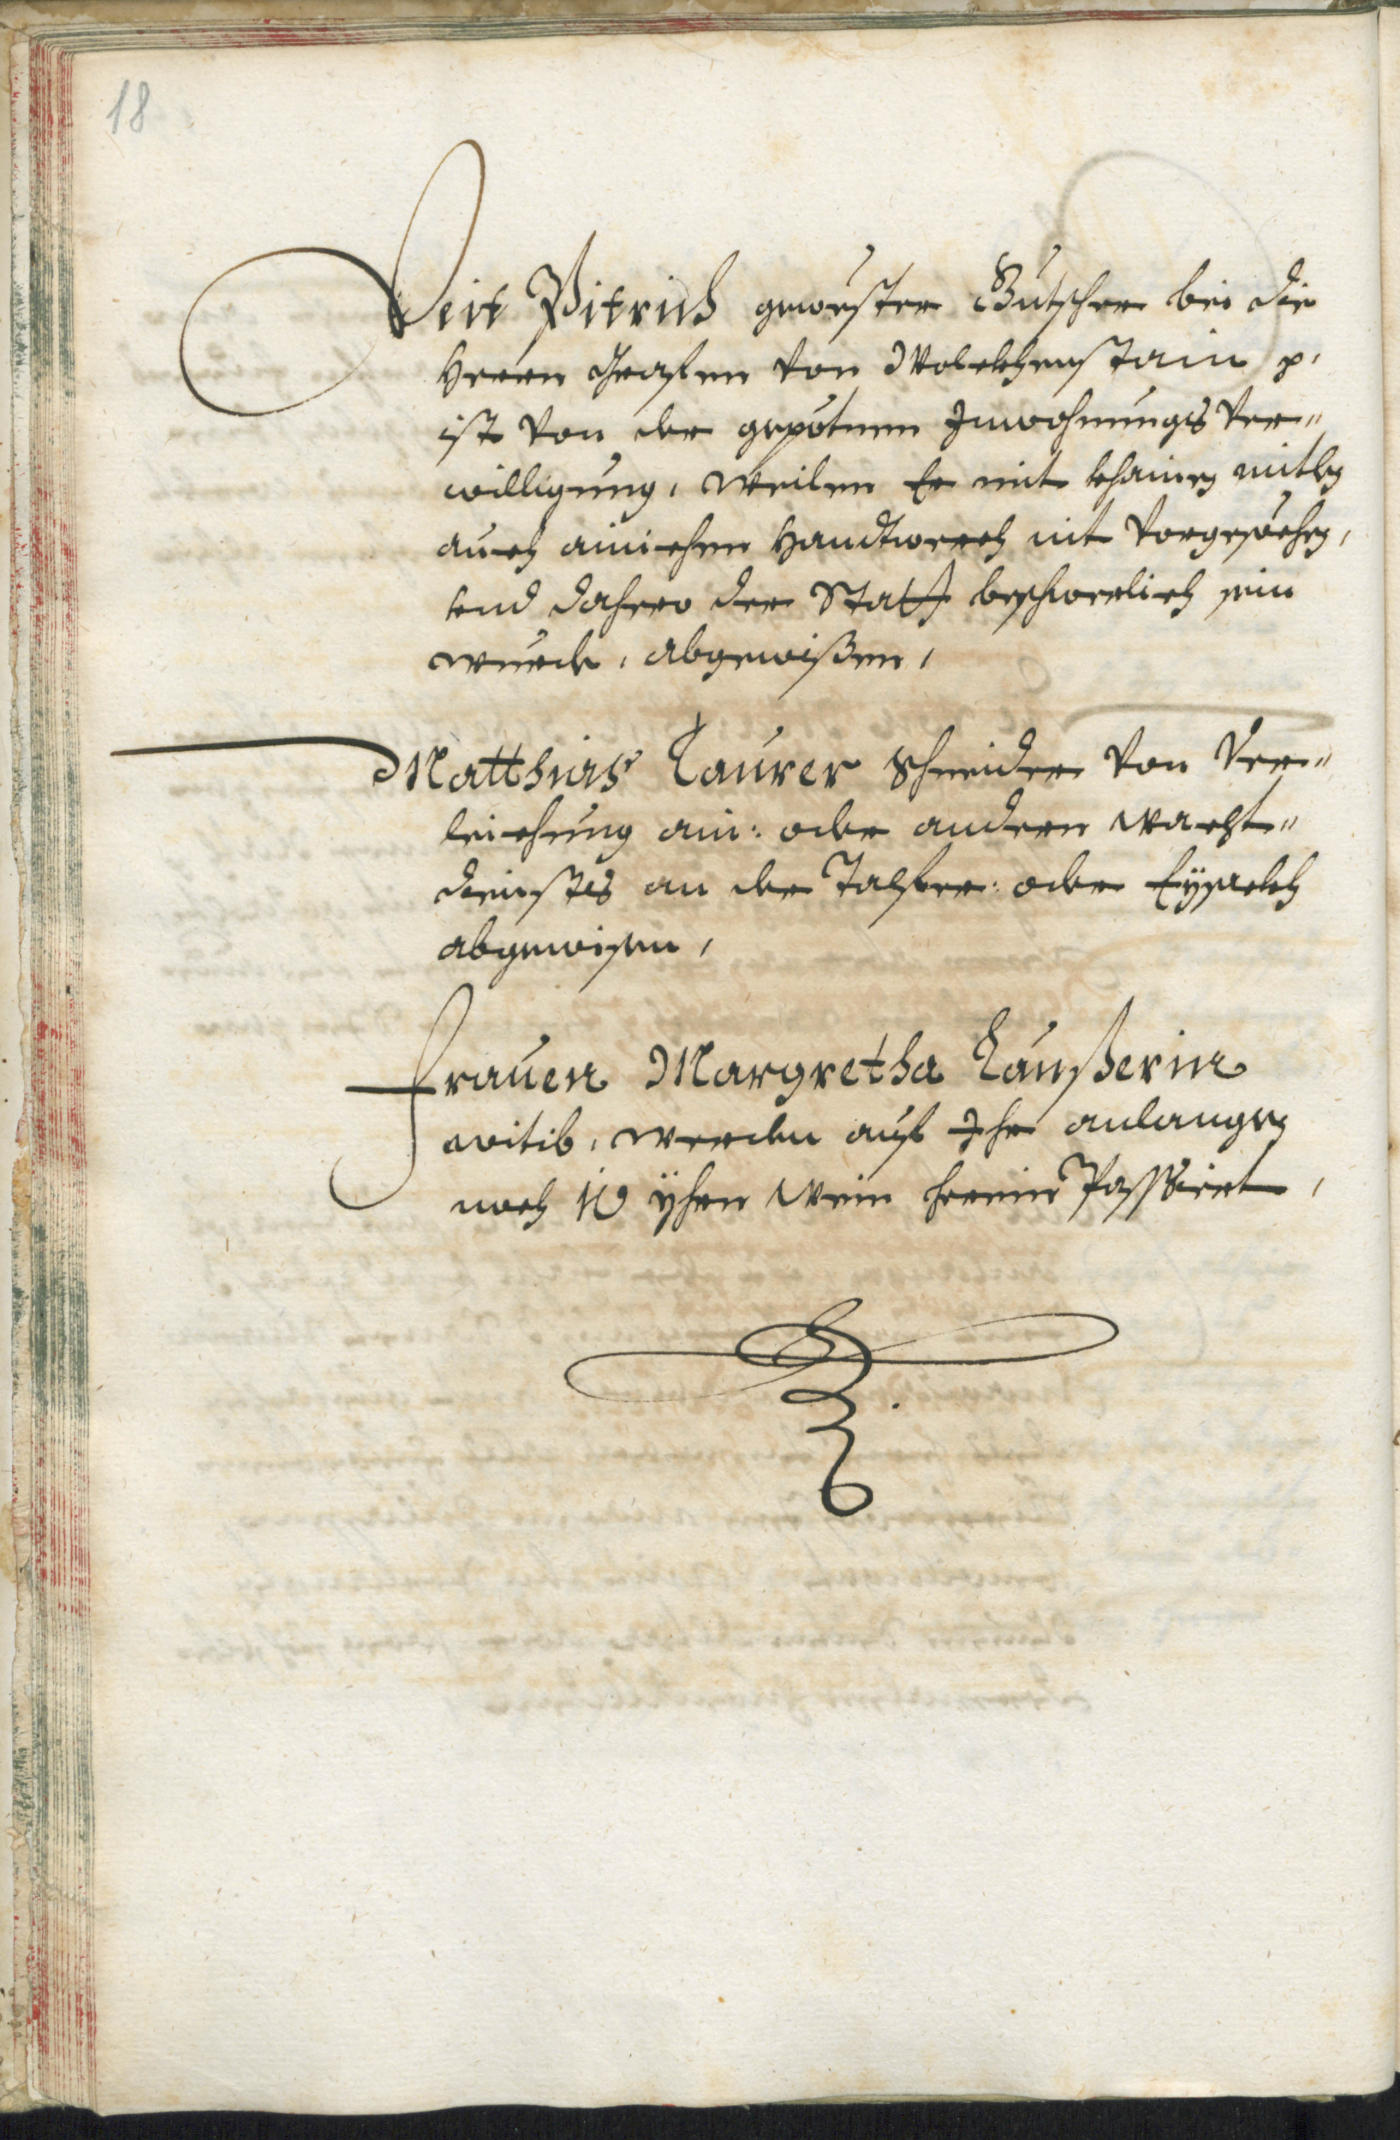 18
Veit Pitrich gewester Gutscher bei die
Herrn Grafen von Wolckhenstain p.
ist von der gepotnen Inwohnungs Ver-
willigung, weilen Er mit khainen mitlen
auch ainichen Handtwerch nit vorgesechen,
und dahero der Statt beschwerlich sein
wurde, abgewißen,
Matthias Laurer Schneider von Ver-
leichung ain: oder andern Wacht-
diensts an der Talfer: oder Eysackh
abgewisen,
Frauen Margretha Laußerin
witib, werden auf Ihr anlangen
noch 10 yhrn Wein herein Passiert,